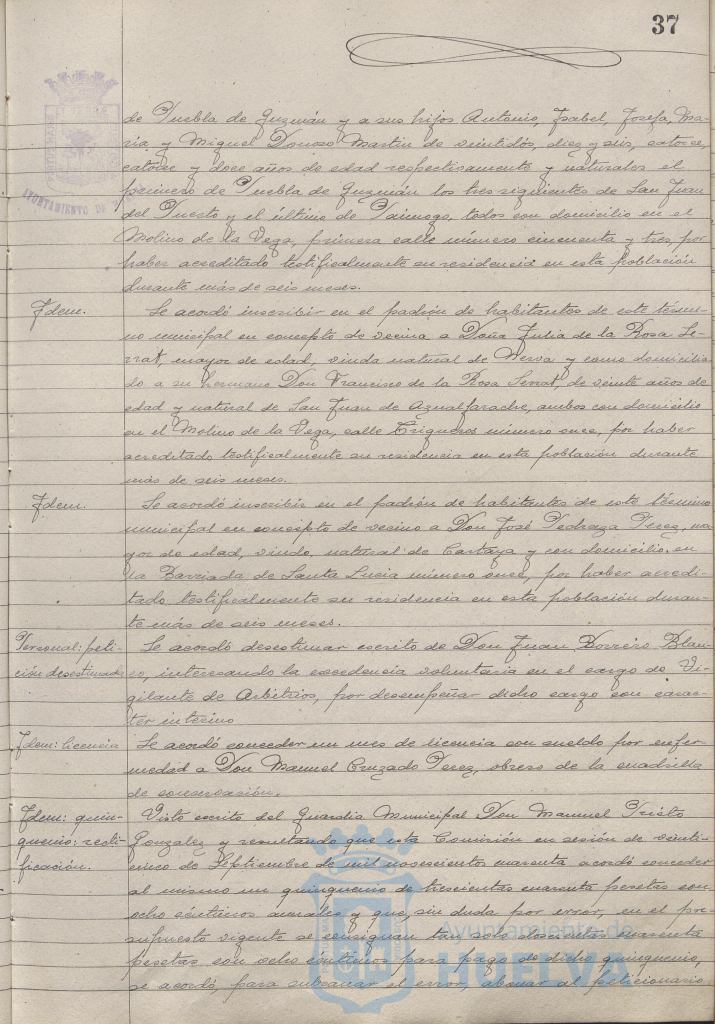 37
de Puebla de Guzmán y a sus hijos Antonio, Isabel, Josefa, Ma-
ría, y Miguel Donoso Martin de veintidós, diez y seis, catorce,
catorce y doce años de edad respectivamente y naturales el
primero de Puebla de Guzmán los tres siguientes de San Juan
del Puerto y el último de Paimogo, todos con domicilio en el
Molino de la Vega, primera calle número cincuenta y tres, por
haber acreditado testificalmente su residencia en esta población
durante más de seis meses.
Idem.
Se acordó inscribir en el padrón de habitantes de este térmi-
no municipal en concepto de vecina a Doña Julia de la Rosa Se-
rrat, mayor de edad, viuda natural de Nerva y como domicilia-
do a su hermano Don Francisco de la Rosa Serrat, de veinte años de
edad y natural de San Juan de Aznalfarache, ambos con domicilio
en el Molino de la Vega, calle Trigueros número once, por haber
acreditado testificalmente su residencia en esta población durante
más de seis meses.
Idem.
Se acordó inscribir en el padrón de habitantes de este término
municipal en concepto de vecino a Don José Pedraza Perez, ma-
yor de edad, viudo, natural de Cartaya y con domicilio en
la Barriada de Santa Lucia número once, por haber acredi-
tado testificalmente su residencia en esta población duran-
te más de seis meses.
Personal: peti-
ción desestimada
Se acordó desestimar escrito de Don Juan Borrero Blan-
co, interesando la excedencia voluntaria en el cargo de Vi-
gilante de Arbitrios, por desempeñar dicho cargo con carac-
ter interino
Idem: licencia
Se acordó conceder un mes de licencia con sueldo por enfer
medad a Don Manuel Cruzado Perez, obrero de la cuadrilla
de conservación.
Idem: quin-
quenio: recti-
ficación.
Visto escrito del Guardia Municipal Don Manuel Prieto
Gonzalez y resultando que esta Comisión en sesión de veinti-
cinco de Septiembre de mil novecientos cuarenta acordó conceder
al mismo un quinquenio de trescientas cuarenta pesetas con
ocho céntimos anuales y que, sin duda por error, en el pre-
supuesto vigente se consignan tan solo doscientas cuarenta
pesetas con ocho céntimos para pago de dicho quinquenio,
se acordó, para subsanar el error, abonar al peticionario
AYUNTAMIENTO DE
Ayuntamiento de
HUELVA